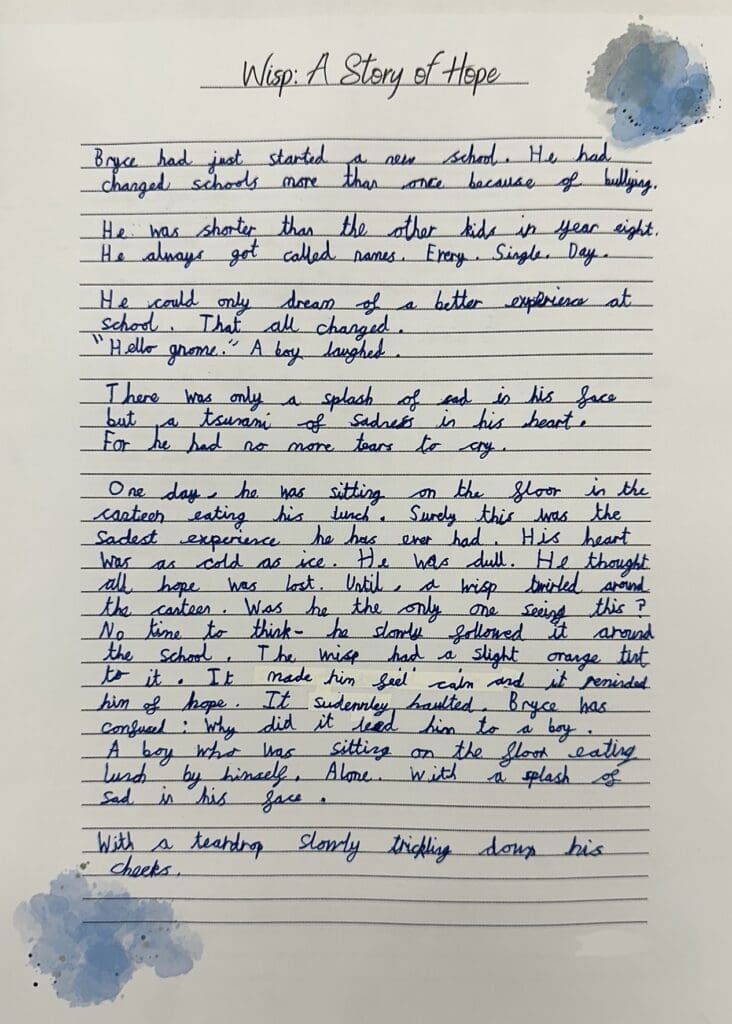 Wisp: A Story of Hope
Bryce had just started a new school. He had
changed schools more than once because of bullying.
He was shorter than the other kids in year eight.
He always got called names. Every. Single. Day.
He could only dream of a better experience at
school. That all changed.
"Hello gnome." A boy laughed.
There was only a splash of sad in his face
but a tsunami of sadness in his heart.
For he had no more tears to cry.
One day, he was sitting on the floor in the
canteen eating his lunch. Surely this was the
sadest experience he has ever had. His heart
was as cold as ice. He was dull. He thought
all hope was lost. Until, a wisp twirled around
the canteen. Was he the only one seeing this?
No time to think- he slowly followed it around
the school. The wisp had a slight orange tint
to it. It made him feel calm and it reminded
him of hope. It sudennley haulted. Bryce was
confused: Why did it lead him to a boy.
A boy who was sitting on the floor eating
lunch by himself. Alone. With a splash of
sad in his face.
With a teardrop slowly trickling down his
cheeks.